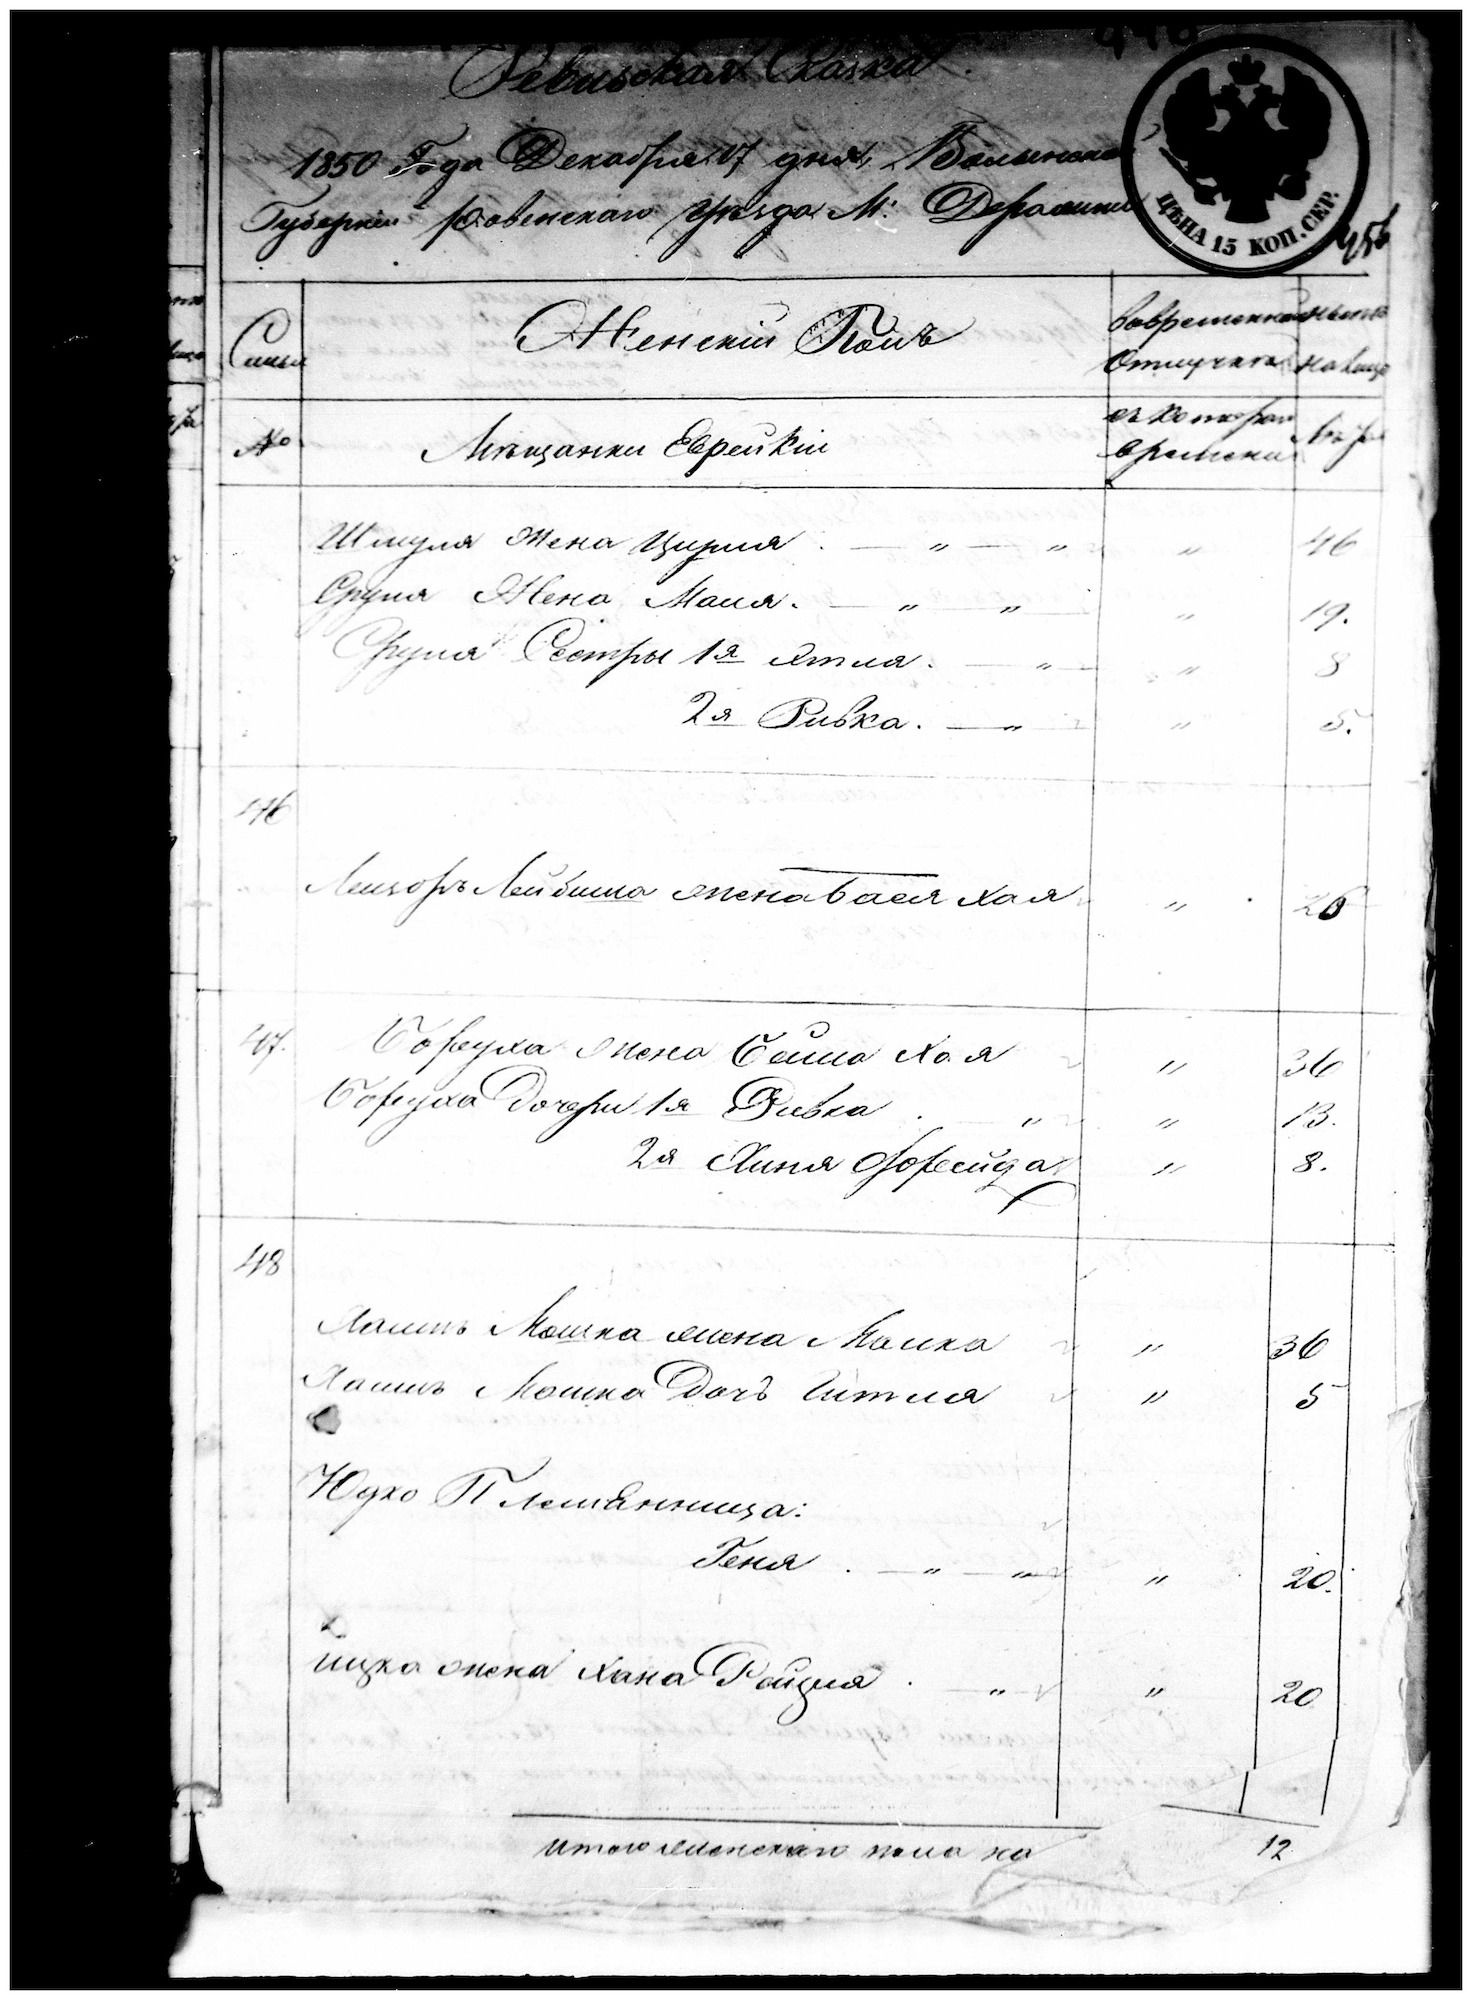 Ревизская Сказка.
1850 Года Декабря 17 дня, Волынской
Губернии Ровенскаго Уезда М: Деражни
ЦѢНА 15 КОП. СЕР.
Семьи
Женскій Полъ
Вовременной
Отлучке
ныне
налицо
№
Мещанки Еврейкіи
съ котораго
времени
Лета
Шмуля жена Цирля . — " — " " 46
Сруля Жена Маля. — " — " " 19.
Сруля Сестры 1я Этля. — " " 8
2я Ривка. — " " 5.
46
Лейбиша жена Бася Хая " 26
47.
Боруха жена Сима Хая " 36
Боруха Дочери 1я Ривка . " " 13.
2я Хиня Фрейда " 8.
48
Хаимъ Мошка жена Малка " 36
Хаимъ Мошка Дочь Итля " 5
Юдко Племянница:
Геня . — " — " " 20.
Ицка жена Хана Рейзля . — " " 20
Итого женскаго пола на 12